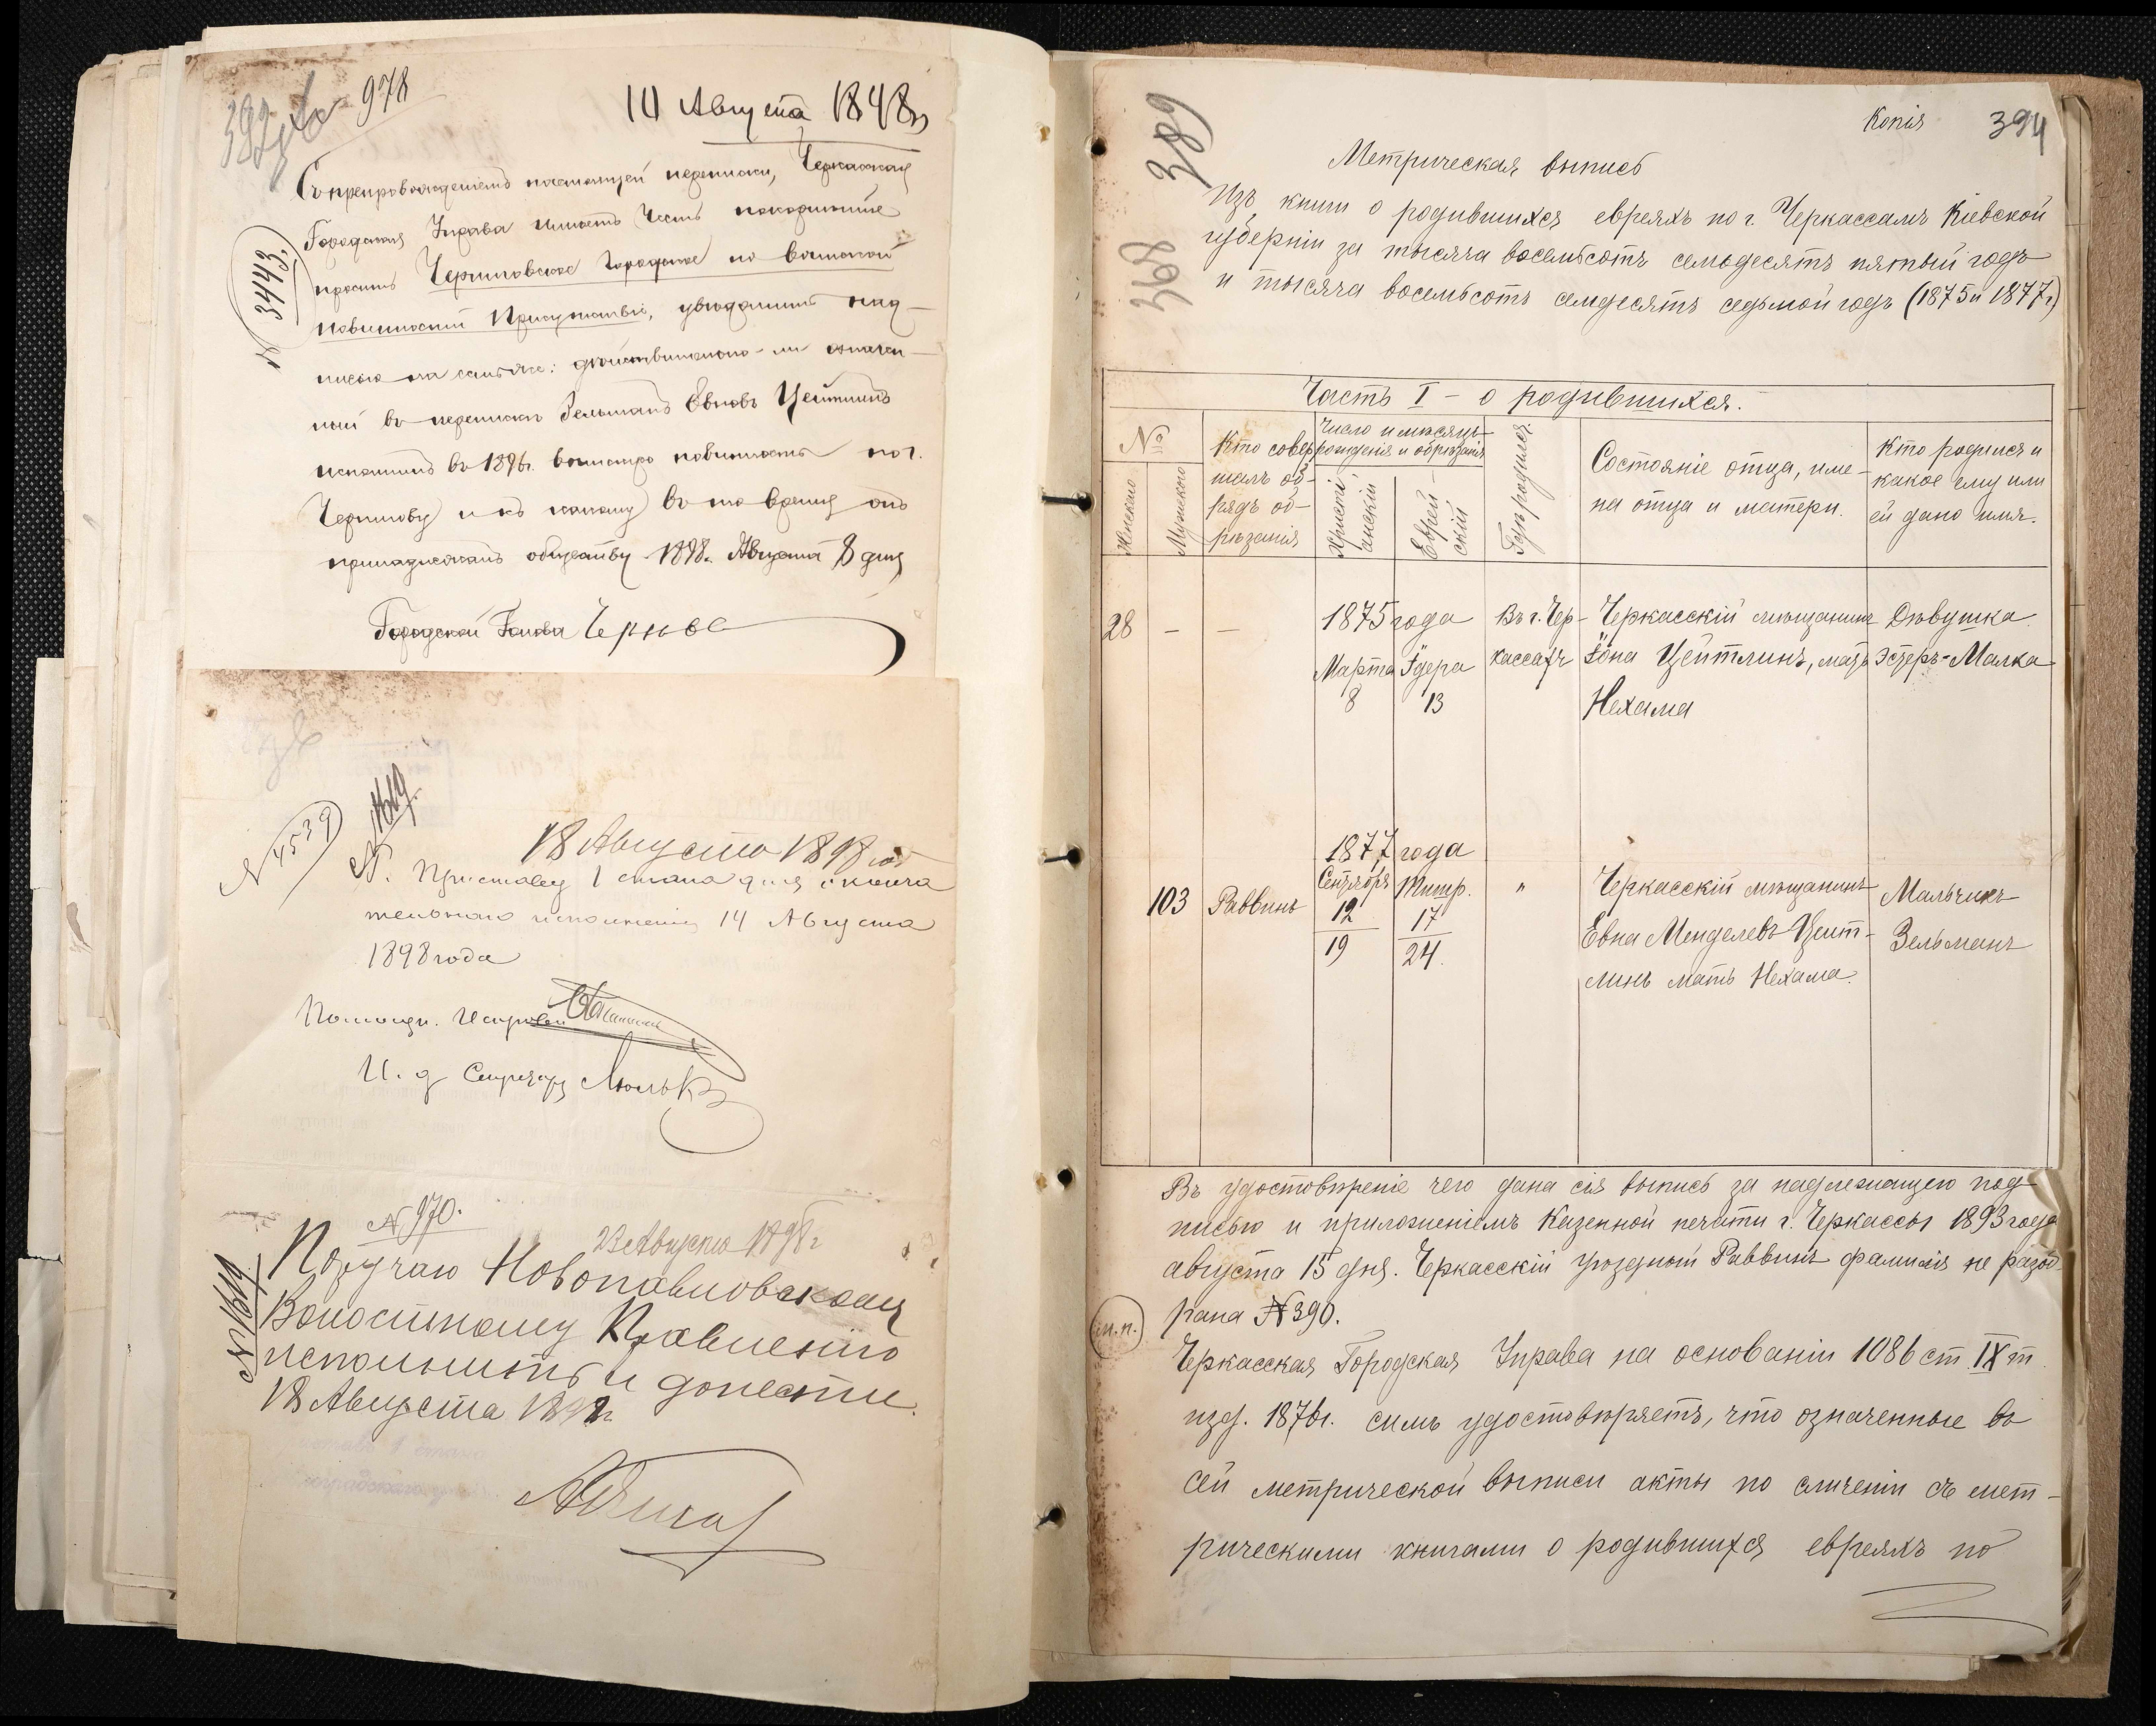 978
14 Августа 1898 г
№ 3443
Съ препровожденіемъ настоящей переписки, Черкасская
Городская Управа имѣетъ честь покорнѣйше
просить Черниговское городское по воинской
повинности Присутствіе, увѣдомить над-
писью на семъ же: дѣйствительно-ли означен-
ный въ перепискѣ Зельманъ Евновъ Цейтлинъ
исполнилъ въ 1896г. воинскую повинность по г.
Чернигову и къ какому въ то время онъ
принадлежалъ обществу 1898г. Августа 8 дня
Городской Голова Чернове
№ 4539
№ 1619.
18 Августа 1898 год
Г. Приставу 1 стана для оконча
тельнаго исполненія 14 Августа
1898 года
Помощн. Исправн
И. д Секретаря Люлька
№ 970.
23 Августа 1898 г
№ 1619
Поручаю Новопавловскому
Волостному Правленію
исполнить и донести.
18 Августа 1898г
389
368
Копія 394
Метрическая выпись
Изъ книги о родившихся евреяхъ по г. Черкассамъ Кіевской
губерніи за тысяча восемьсотъ семьдесятъ пятый годъ
и тысяча восемьсотъ семдесятъ седьмой годъ (1875 и 1877г)
Часть I – о родившихся.
№
Женскаго
Мужского
Кто совер-
шалъ об-
рядъ об-
рѣзанія
Число и мѣсяцъ
рожденія и обрѣзанія
Христі-
анскій
Еврей-
скій
Гдѣ родился
Состояніе отца, име-
на отца и матери.
Кто родился и
какое ему или
ей дано имя.
28 – – 1875 года Въ г. Чер- Черкасскій мѣщанинъ Дѣвушка
Марта Ӏдера кассахъ Іона Цейтлинъ, мать Эстеръ-Малка
8 13 Нехама
1877 года
103 Раввинъ Сентября Тишр. " Черкасскій мѣщанинъ Мальчикъ
12 17 Евна Менделевъ Цейт- Зельманъ
19 24. линъ мать Нехама.
Въ удостовѣреніе чего дана сія выпись за надлежащею под-
писью и приложеніемъ Казенной печати г. Черкассы 1893 года
августа 15 дня. Черкасскій уѣздный Раввинъ фамилія не разоб-
рана №390.
(м.п.)
Черкасская Городская Управа на основаніи 1086 ст IX т
изд. 1876г. симъ удостовѣряетъ, что означенные въ
сей метрической выписи акты по сличеніи съ мет-
рическими книгами о родившихся евреяхъ по